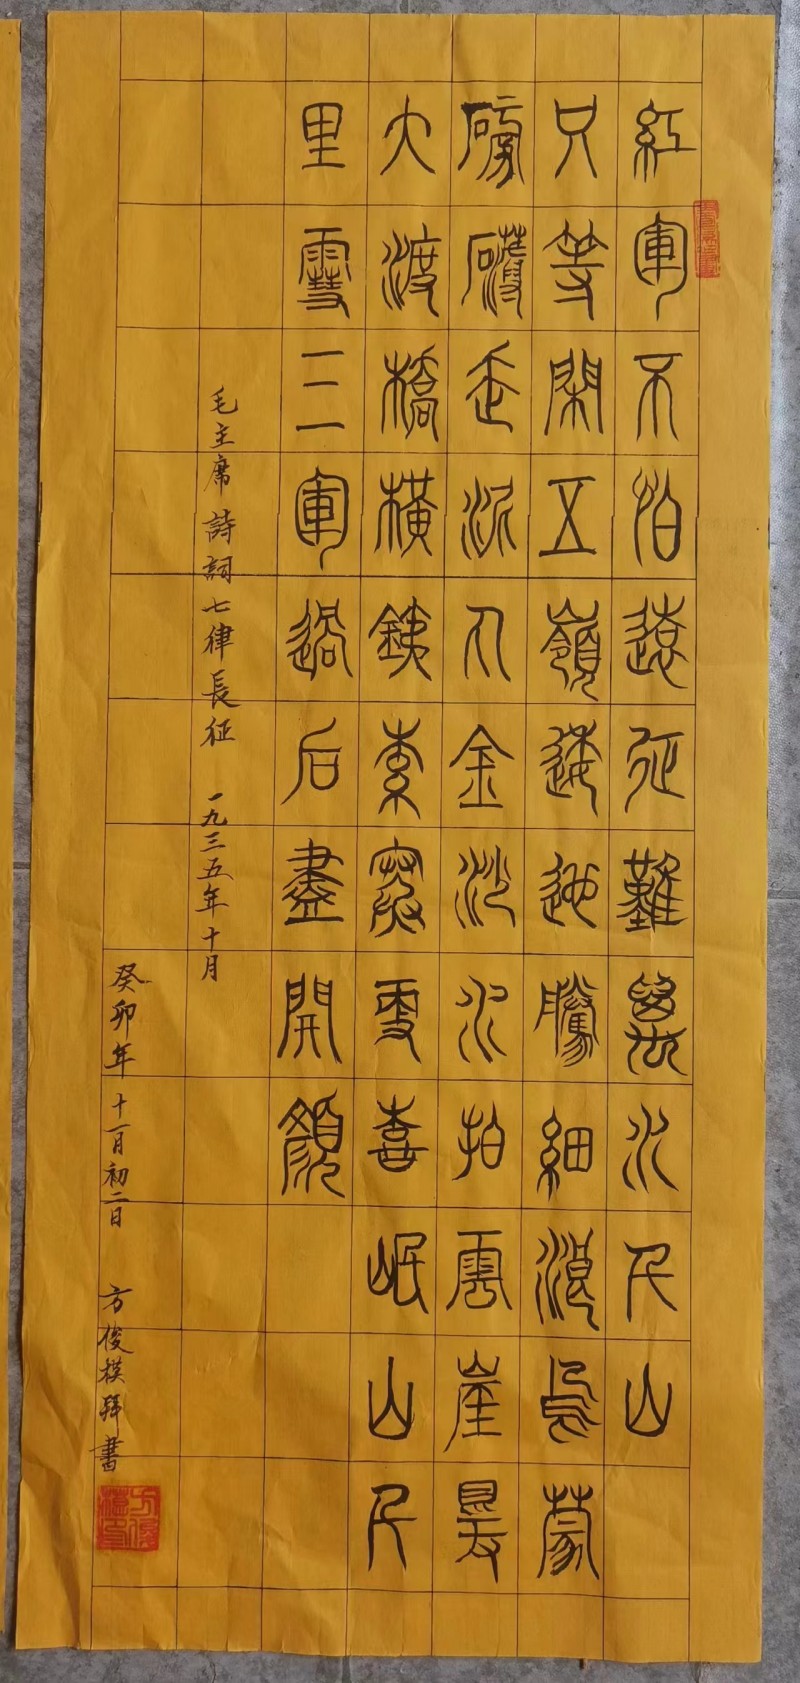 紅軍不怕遠征難萬水千山
只等閑五嶺逶迤騰細浪烏蒙
磅礴走泥丸金沙水拍雲崖暖
大渡橋橫鐵索寒更喜岷山千
里雪三軍過后盡開顏
毛主席詩詞七律長征 一九三五年十月
癸卯年十一月初二日 方俊模拜書